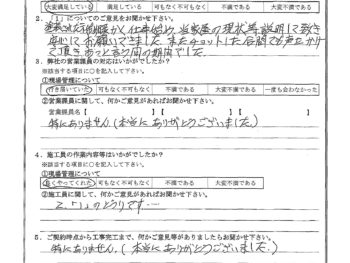 大変満足している 満足している 可も不可も無く 不満である 大変不満である
2.「1」についてのご意見をお聞かせ下さい。
当家屋の現状等説明して頂き
安心してお願いできました。またチョットした合間でも声をかけ
て頂きあっと言う間の期間でした。
3. 弊社の営業課員の対応はいかがでしたか?
※該当する項目に○を記入して下さい。
①現場管理について
行き届いていた 可も不可も無く 不満である 大変不満である 一度も会わなかった
②営業課員に関して、何かご意見があればお聞かせ下さい。
営業課員名【 】【 】【 】
特にありません(本当にありがとうございました。)
4. 施工員の作業内容等はいかがでしたか?
※該当する項目に○を記入して下さい。
①現場管理について
良くやってくれた 可も不可も無く 不満である 大変不満である
②施工員に関して、何かご意見があればお聞かせ下さい。
2.「1」のとうりです…
5. ご契約時点から工事完工まで、何かご意見等がありましたらお聞かせ下さい。
特にありません。(本当にありがとうございました。)